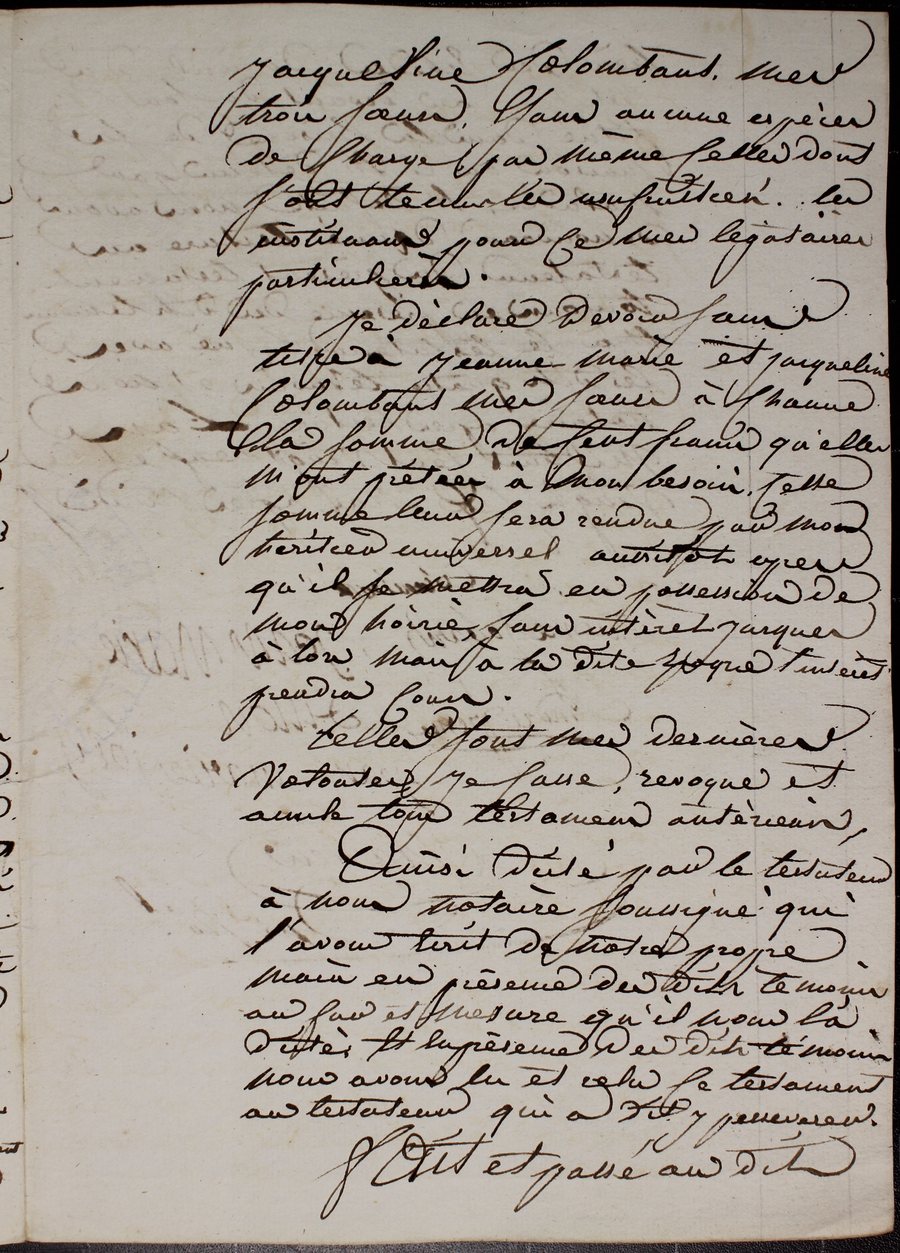 Jacqueline Colombans. mes
trois sœurs, sans aucune espèces
de charge, pas même celles dont
sont tenus les usufruitiers. les
instituans pour ce mes légataires
particulières.
Je déclare devoir sans
titre à Jeanne marie et jacqueline
Colombans mes sœurs à chacune
la somme de cent francs qu'elles
m'ont prétées à mon besoin. cette
somme leur sera rendue par mon
héritier universel aussitot apres
qu'il se mettra en possession de
mon hoirie, sans intèret jusques
à lors, mais à la dite epoque l'intèrêt
prendra cours.
telles sont mes dernières
volontés, je casse, revoque et
annule tous testamens antèrieurs,
Ainsi dicté par le testateur
à nous notaire soussigné qui
l'avons ecrit de notre propre
main en prèsence des dits temoins
au fur et mesure qu'il nous l'à
dictés. Et en prèsence des dits témoins
nous avons lu et relu ce testament
au testateur qui a dit y perseverer.
Fait et passé au dit